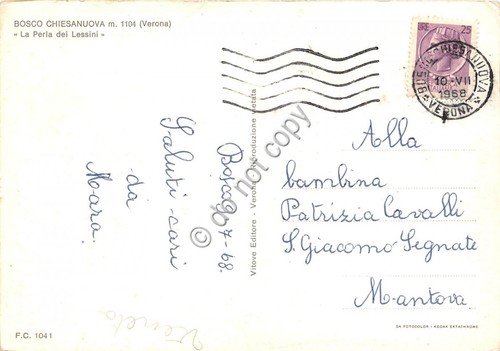 BOSCO CHIESANUOVA m. 1104 (Verona)
« La Perla dei Lessini »
25
BOSCO CHIESANUOVA
10-VII
1968
* VERONA *
Bosco 9-7-68.
Saluti cari
da
Mara
Vitove Editore - Verona - Riproduzione vietata
do not copy
Alla
bambina
Patrizia Cavalli
S. Giacomo Segnate
Mantova
Veneto
F.C. 1041
DA FOTOCOLOR - KODAK EKTACHROME